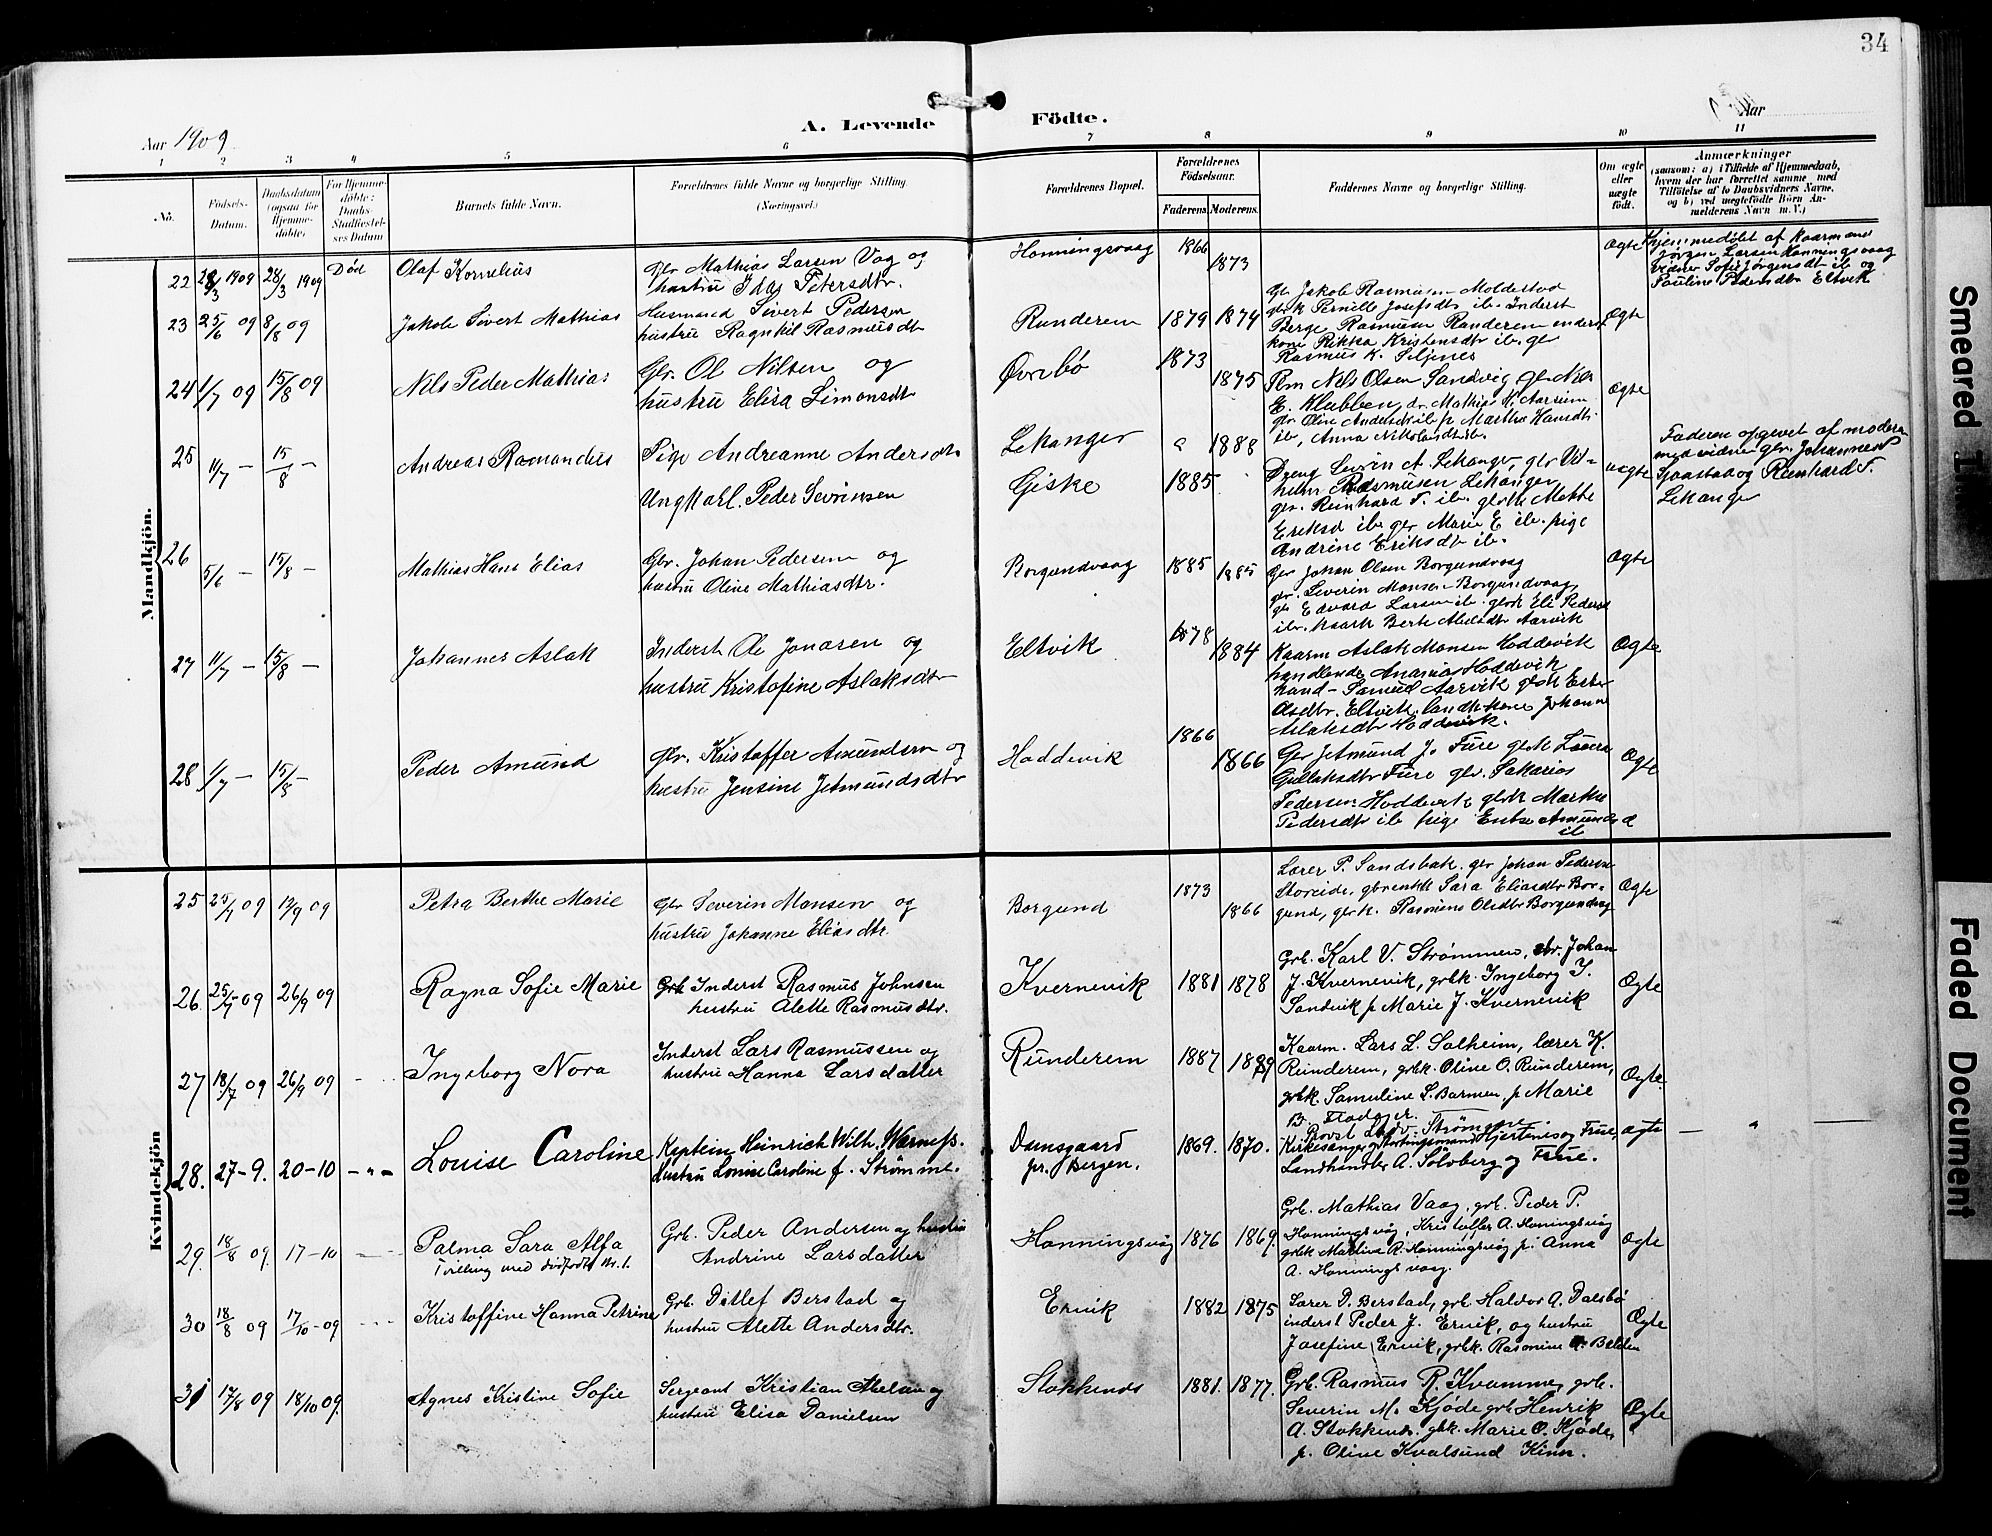 34
Aar 1909
A. Levende Födte.
Aar
1 2 3 4 5 6 7 8 9 10 11
No.
Födsels-Datum.
Daabsdatum (ogsaa for Hjemme-döbte)
For Hjemme-döbte: Daabs-Stadfæstel-ses Datum
Barnets fulde Navn.
Forældrenes fulde Navne og borgerlige Stilling. (Næringsvei.)
Forældrenes Bopæl.
Forældrenes Födselsaar.
Faderens. Moderens.
Faddernes Navne og borgerlige Stilling.
Om ægte eller uægte födt.
Anmærkninger
(saasom: a) i Tilfælde af Hjemmedaab,
hvem der har forrettet samme med
Tilföielse af to Daabsvidners Navne,
og b) ved uægtefödte Börn An-
melderens Navn m. V.)
Mandkjön.
22 28/3 1909 28/3 1909 Död Olaf Kornelius
Gbr Mathias Larsen Vag og
hustru Ida Petersdtr.
Honningsvaag 1866 1873
Ægte
Hjemmedöbt af Kaarmand
Jörgen Larsen Honningsvaag
vidner Sofie Jörgensdtr ib og
Pauline Pedersdtr Eltvik
23 25/6 09 8/8 09 Jakob Sivert Mathias
Husmand Sivert Pedersen
hustru Ragnhil Rasmusdtr
Runderem 1879 1874
Gbr Jakob Rasmusen Moldestad
gbrk Pernille Josefsdtr ib. Inderst
Berge Rasmusen Runderem inderst
kone Rikka Kristensdtr ib. gbr
Rasmus K. Seljenes
Ægte
24 1/7 09 15/8 09 Nils Peder Mathias
Gbr. Ol Nilsen og
hustru Elisa Simonsdtr
Övrebö 1873 1875
Nils Olsen Sandvig, gbr Nils
E. Klubben, dr. Mathias N. Aarseim
gbr. Oline Andersdtr ib p. Marthe Hansdtr
ib, Anna Nikolaisdtr ib.
Ægte
25 11/7 – 15/8 – Andreas Romandus
Pige Andreanne Andersdtr
Ungkarl. Peder Severinsen
Lekanger 1888
Giske 1885
Dreng Severin A. Lekanger, gbr Vil-
helm Rasmusen Lekanger
gbr. Reinhard T. ib. gbrk Mette
Eriksd ib gbr Marie E ib. pige
Andrine Eriksdtr ib.
uægte
Faderen opgivet af moderen
med vidner gbr. Johannes
Sjaastad og Reinhard T.
Lekanger
26 5/6 – 15/8 – Mathias Hans Elias
Gbr. Johan Pedersen og
hustru Oline Mathiasdtr.
Borgundvaag 1885 1885
Gbr Johan Olsen Borgundvaag
gbr. Severin Monsen Borgundvaag,
gbr Edvard Larsen ib. gbrk Eli Pedersd
ib. kaark Berte Abelsdtr Aarvik
Ægte
27 11/7 – 15/8 – Johannes Aslak
Inderst Ole Jonasen og
hustru Kristofine Aslaksdtr
Eltvik 1878 1884
Kaarm Aslak Monsen Hoddevik
handlende Ananias Hoddevik
hand– Samuel Aarvik gbrk Ester
Olsdtr. Eltvik, landh.kone Johanne
Aslaksdtr Hoddevik.
Ægte
28 11/7 – 15/8 – Peder Amund
Gbr. Kristoffer Amundsen og
hustru Jensine Jetmundsdtr
Hoddevik 1866 1866
Gbr Jetmund J. Fure gbrk Lovise
Gullaksdtr Fure gbr. Sakarias
Pedersen Hoddevik gbrk Marthe
Pedersdtr ib pige Entse Amundsd
ib
Ægte
Kvindekjön
25 25/7 09 12/9 09 Petra Berthe Marie
Gbr Severin Monsen og
hustru Johanne Eliasdtr.
Borgund 1873 1866
Lærer P. Sandsbak. gbr Johan Pedersen
Storeide, gbrenke Sara Eliasdtr Bor-
gund, gbrk. Rasmine Olsdtr Borgundvag
Ægte
26. 25/7 09 26/9 09 Ragna Sofie Marie
Inderst Rasmus Johnsen
hustru Alette Rasmusdtr.
Kvernevik 1881 1878
Grb. Karl V. Strømmen, gbr. Johan
J. Kvernevik, grbk. Ingeborg I.
Sandvik p Marie J. Kvernevik
Ægte
27 18/7 09 26/9 09 Ingeborg Nora
Inderst Lars Rasmussen og
hustru Hanna Larsdatter
Runderem 1887 1889
Kaarm. Lars L. Salheim, lærer K.
Runderem, grbk. Oline O. Runderem,
grbk. Samuline S. Barmen, p Marie
B. Fladøjer.
Ægte.
28. 27-9. 20-10 – " – Louise Caroline
Kaptein Heinrich Wilh. Warneß.
Hustru Louise Caroline f. Strømme.
Damsgaard
pr. Bergen. 1869. 1870.
Provst Ludv. Strömme
Kirkesanger og Stortingsmand Hjertenes og Frue,
Landhandler A. Sölvberg og Frue.
ægte
29. 18/8 09. 17-10 Palma Sara Alfa
Tvilling med dödfödte nr. 1.
Grb. Peder Andersen og hustru
Andrine Larsdatter
Honningsvåg 1876 1869.
Grb. Mathias Vaag, grb. Peder P.
Honningsvåg, Kristoffer A. Honingsvåg
grbk Martine R. Honningsvåg p. Anna
A. Honnings vaag.
Ægte
30 18/8 09 17/10-09 Kristoffine Hanna Petrine
Grb. Ditlef Berstad og
hustru Alette Andersdtr.
Ervik 1882 1875
Lærer D. Berstad, grb. Haldor A. Dalsbö
inderst Peder J. Ervik, og hustru
Josefine Ervik, grbk. Rasmine
Ægte
31 17/8 09 18/10 09. Agnes Kristine Sofie
Sergeant Kristian Abelsen og
hustru Elisa Danielsen
Stokkenes 1881. 1877.
Grb. Rasmus R. Kvamme, grb.
Severin M. Kjöde grb Henrik
A. Stokkenes. gbk. Marie O. Kjöde,
p. Oline Kvalsund Kinn.
Ægte
Smeared Ink
Faded Document